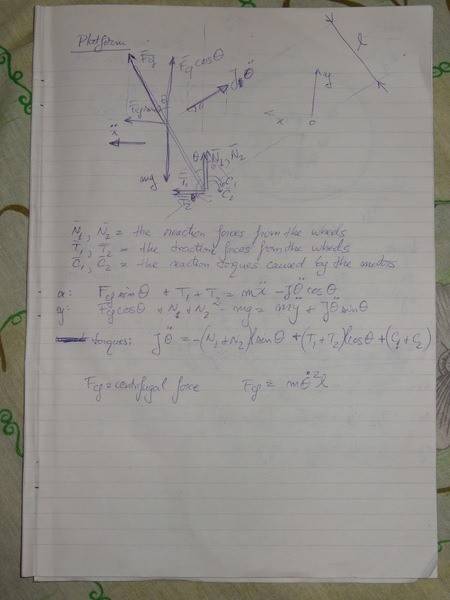 Platform
F̄cf
F̄cf cosθ
Jθ̈
l
y
x
o
θ
ẍ
mg
θ N̄1, N̄2
T̄1
T̄2
C̄1
C̄2
N̄1, N̄2 = the reaction forces from the wheels
T̄1, T̄2 = the traction forces from the wheels
C̄1, C̄2 = the reaction torques caused by the motors
x: Fcf sinθ + T1 + T2 = mẍ - Jθ̈ cosθ
y: Fcf cosθ + N1 + N2 - mg = mÿ + Jθ̈ sinθ
Torques: Jθ̈ = -(N1+N2)l sinθ + (T1+T2)l cosθ + (C1+C2)
Fcf = centrifugal force Fcf = mθ̇²l